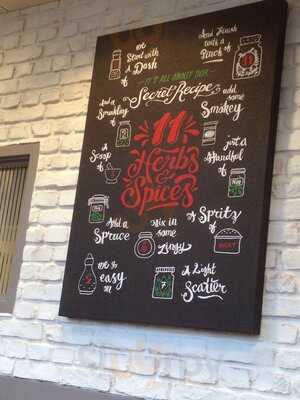 We Start with a Dash of
And Finish with a Pinch of
11
...IT'S ALL ABOUT OUR
Secret Recipe
And a Sprinkling of
add some Smokey
11
Herbs
&
Spices
A Scoop of
just a Handful of
Add a Spruce
Mix in some Zingy
A Spritz of
We go easy on
A Light Scatter
7